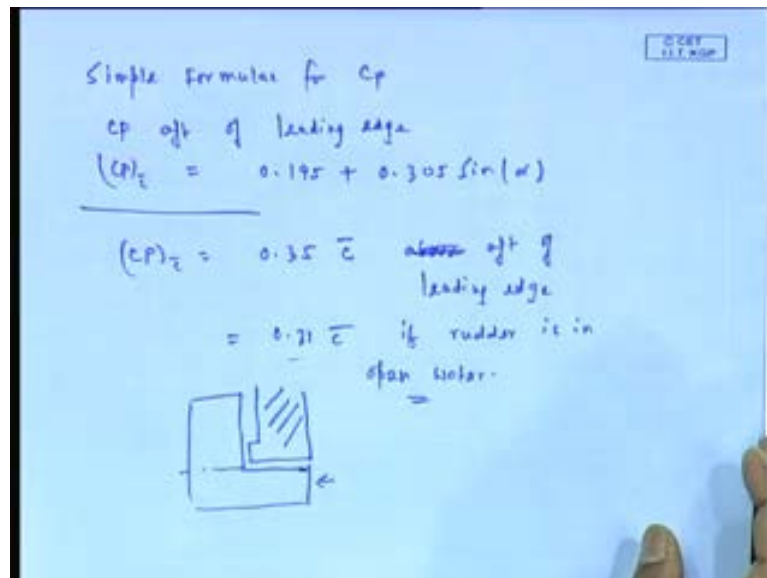 © CET
I.I.T. KGP
Simple Formulas for Cp
CP aft of leading edge
(CP)c̄ = 0.195 + 0.305 Sin(α)
(CP)c̄ = 0.35 c̄ above aft of
leading edge
= 0.31 c̄ if rudder is in
open water.